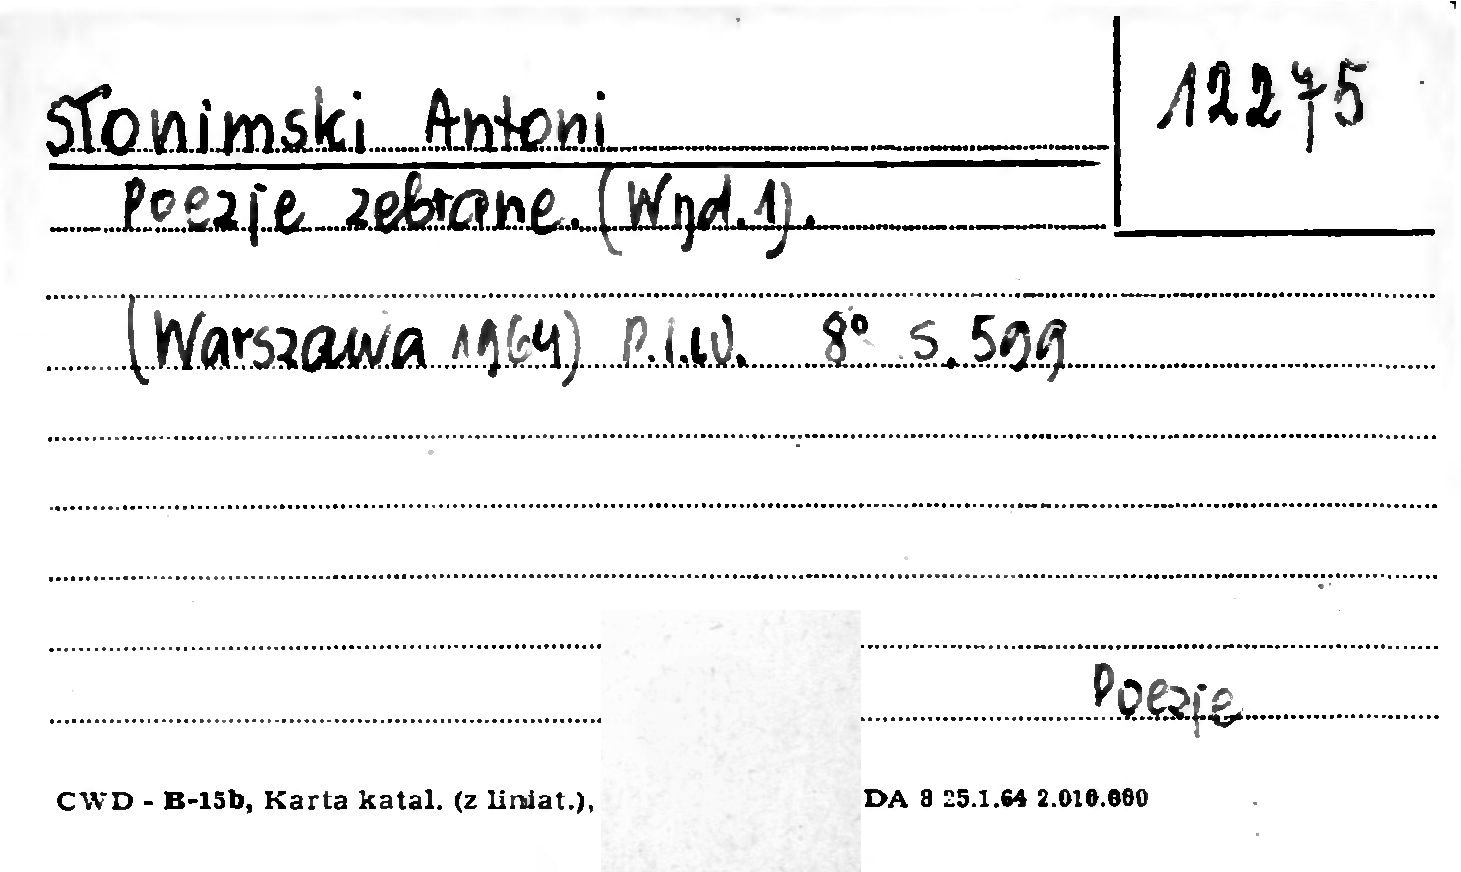 Słonimski Antoni
12275
Poezje zebrane. (Wyd. 1).
(Warszawa 1964) P.I.W. 8° s. 599
Poezje
CWD - B-15b, Karta katal. (z liniat.), DA 8 25.1.64 2.010.000